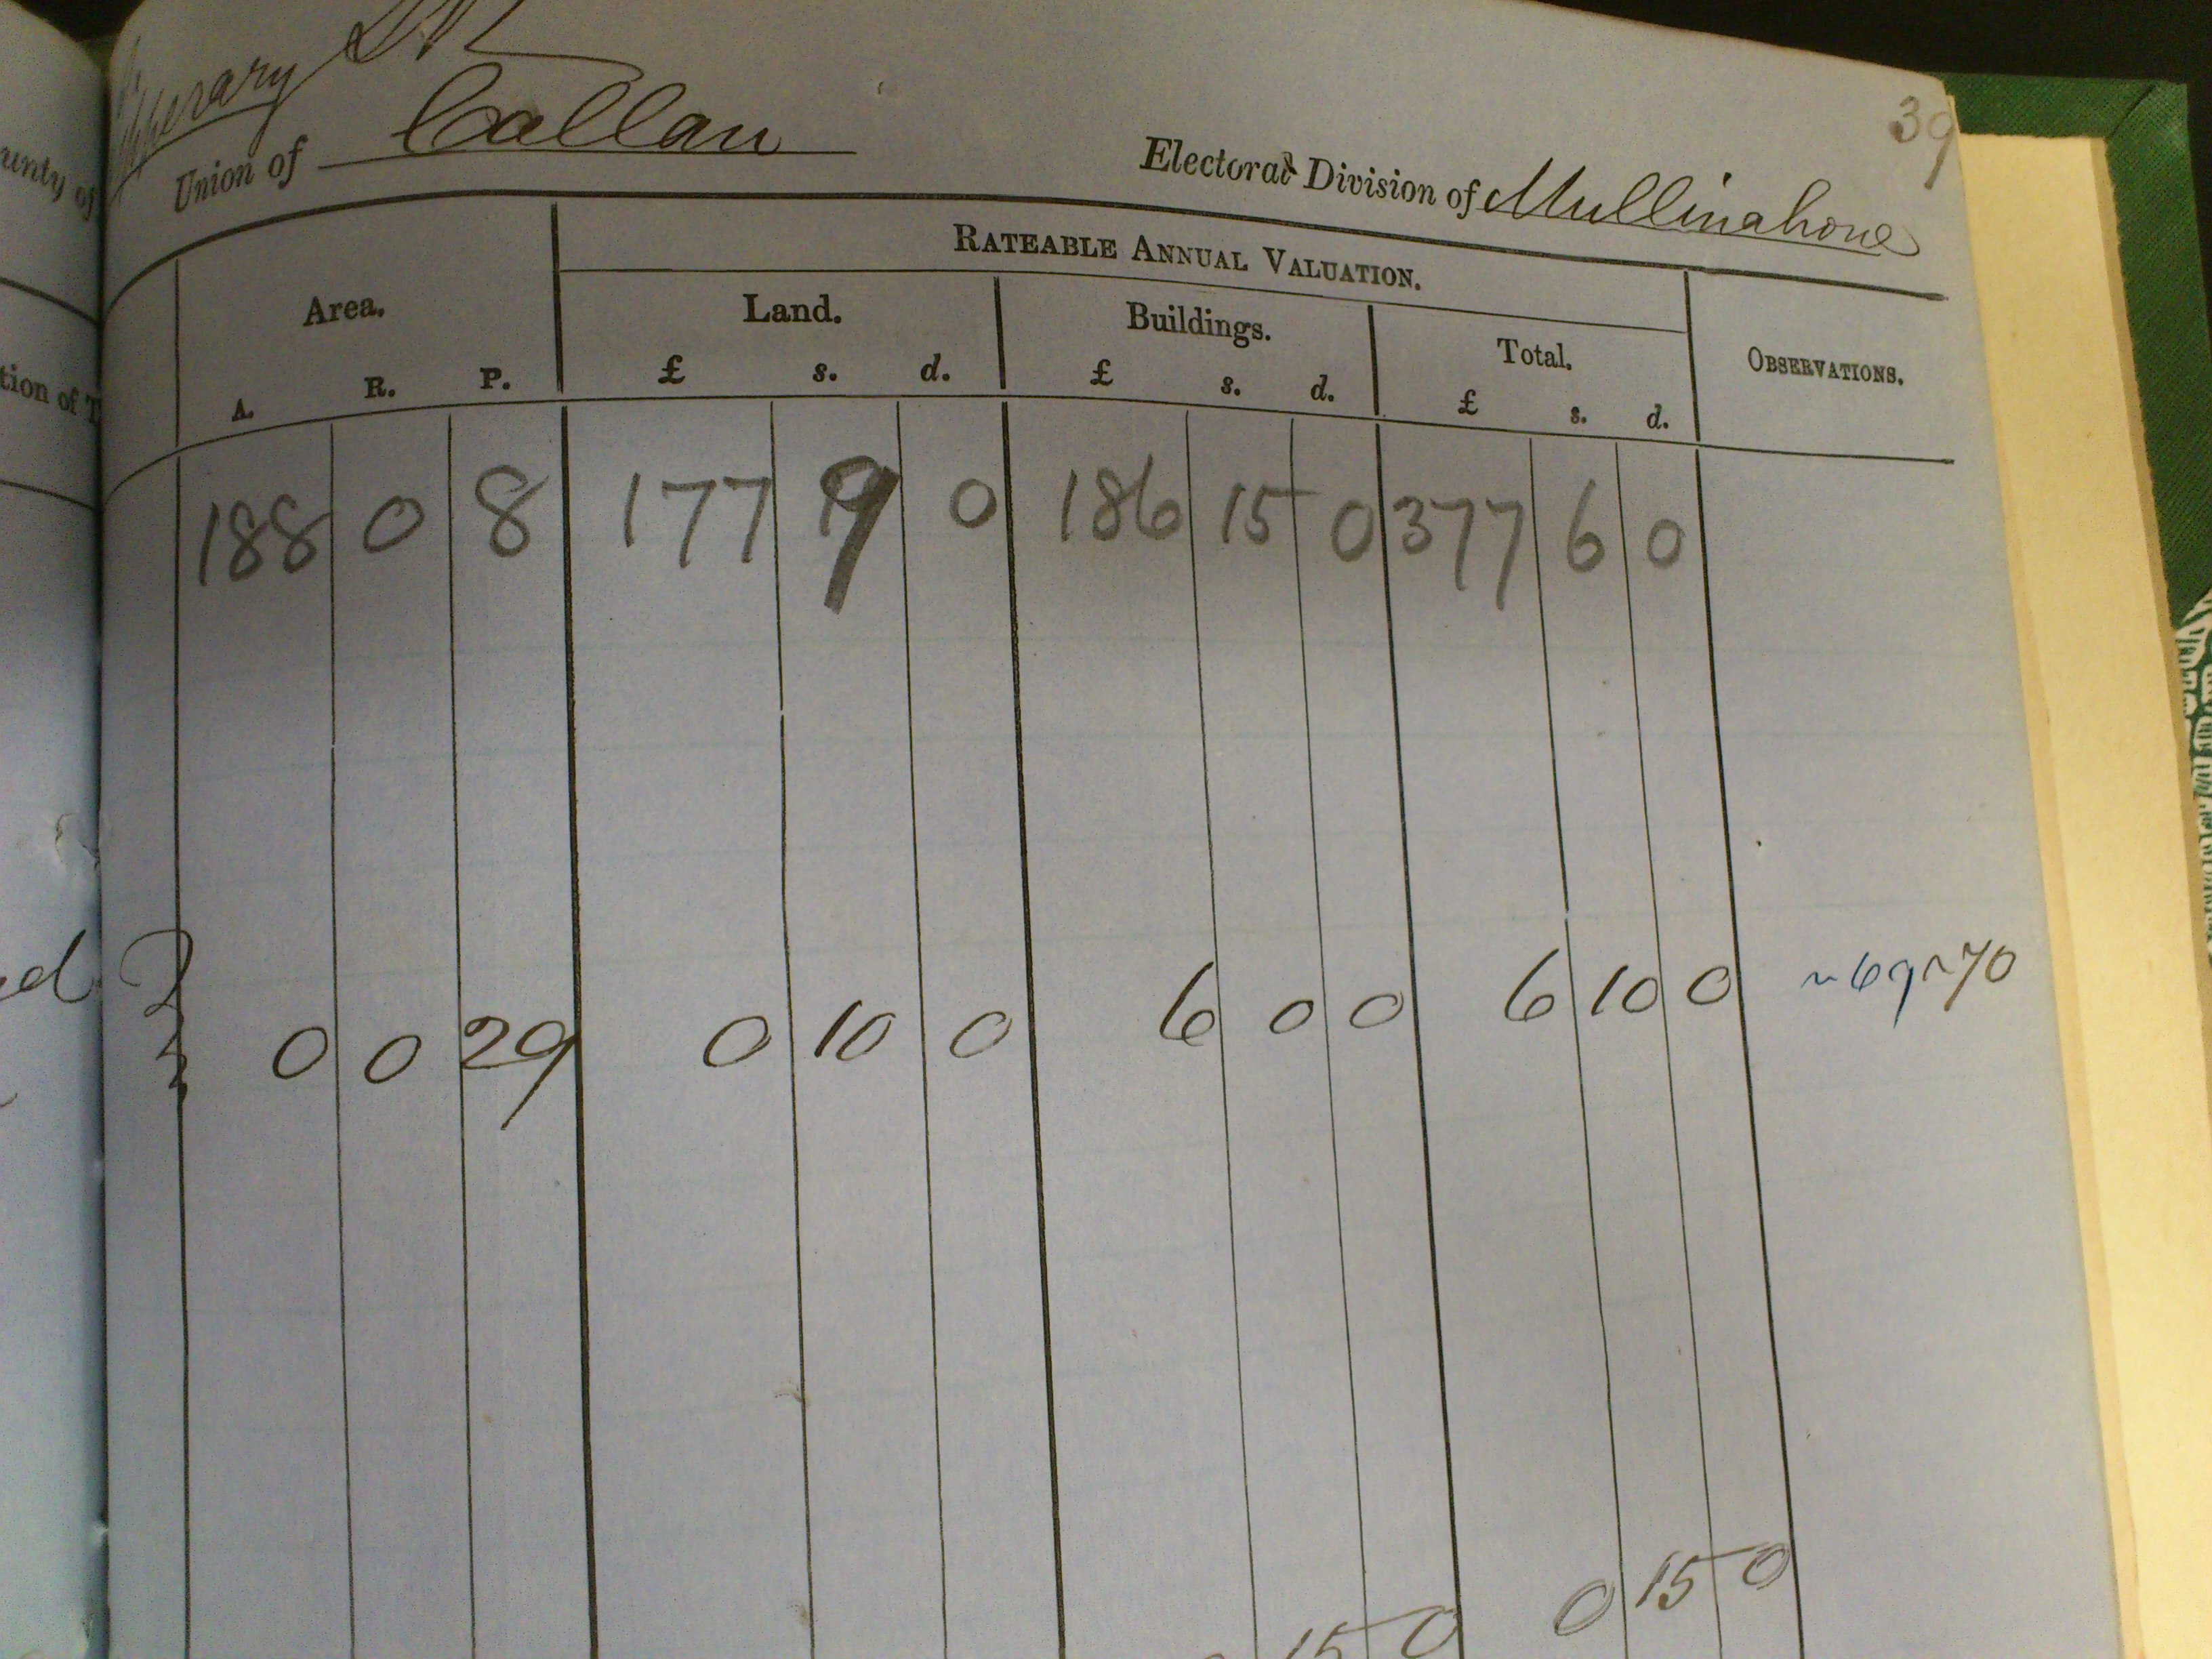 39
Union of Callan
Electoral Division of Mullinahone
RATEABLE ANNUAL VALUATION.
Area. Land. Buildings. Total. OBSERVATIONS.
A. R. P. £ s. d. £ s. d. £ s. d.
188 0 8 177 9 0 186 15 0 377 6 0
0 0 29 0 10 0 6 0 0 6 10 0 ~69~70
15 0 0 15 0